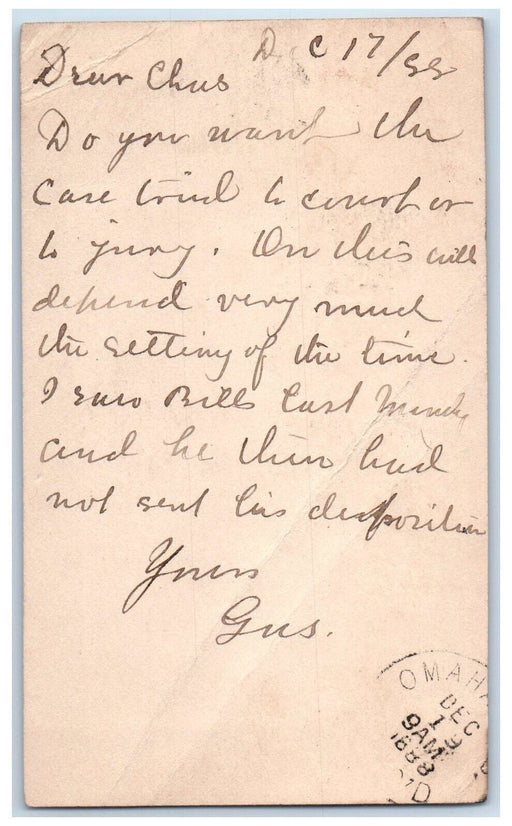 Dec 17/88
Dear Chas
Do you want the
case tried to court or
to jury. On this will
depend very much
the setting of the time.
I saw Bills last Monday
and he then had
not sent his deposition
Yours
Gus.
OMAHA
DEC
19
9AM
1888